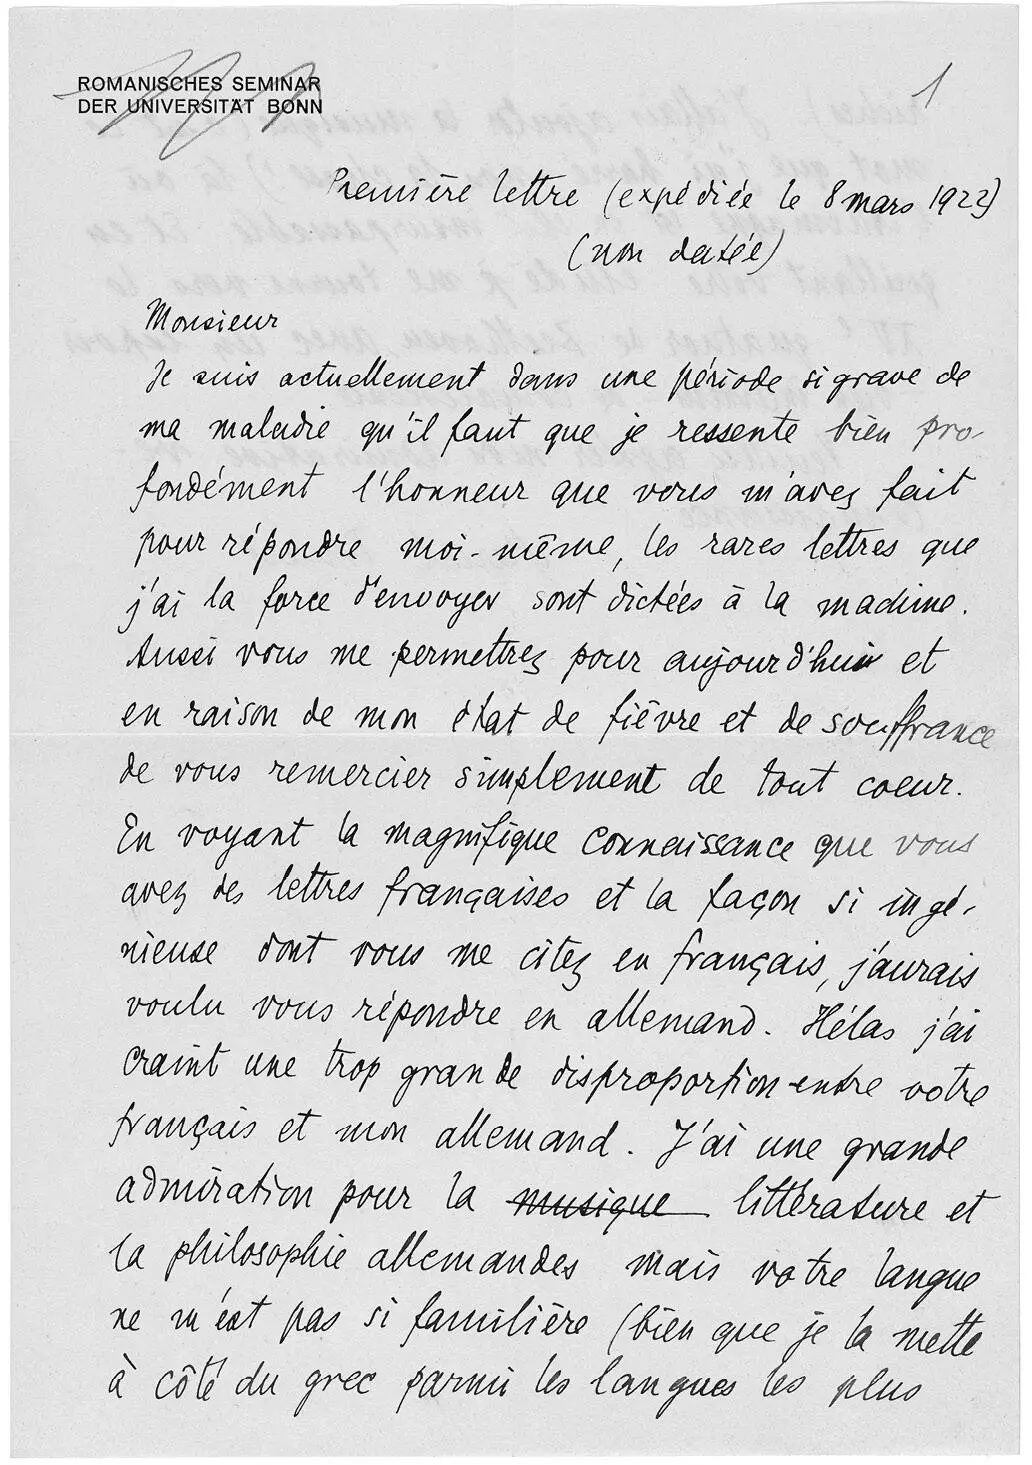 ROMANISCHES SEMINAR
DER UNIVERSITÄT BONN
1
Première lettre (expédiée le 8 mars 1922)
(non datée)
Monsieur
Je suis actuellement dans une période si grave de
ma maladie qu'il faut que je ressente bien pro-
fondément l'honneur que vous m'avez fait
pour répondre moi-même, les rares lettres que
j'ai la force d'envoyer sont dictées à la machine.
Aussi vous me permettrez pour aujourd'hui et
en raison de mon état de fièvre et de souffrance
de vous remercier simplement de tout coeur.
En voyant la magnifique connaissance que vous
avez des lettres françaises et la façon si ingé-
nieuse dont vous me citez en français, j'aurais
voulu vous répondre en allemand. Hélas j'ai
craint une trop grande disproportion entre votre
français et mon allemand. J'ai une grande
admiration pour la musique littérature et
la philosophie allemandes mais votre langue
ne m'est pas si familière (bien que je la mette
à côté du grec parmi les langues les plus